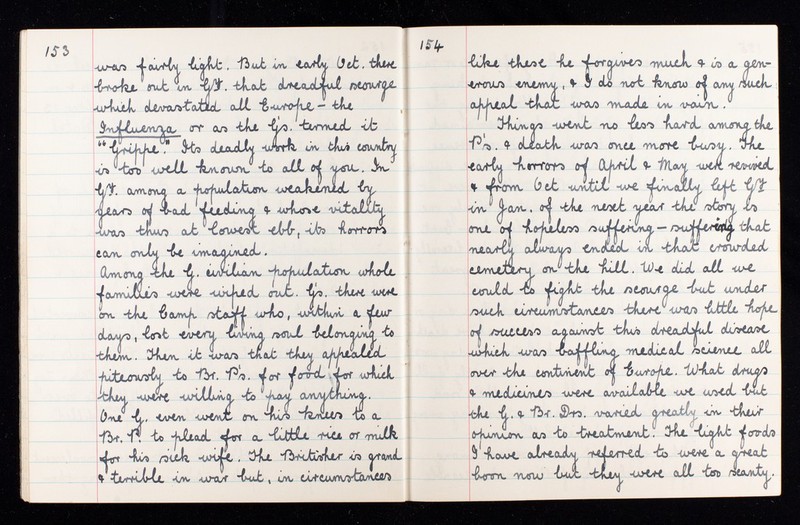 153
was fairly light. But in early Oct. there
broke out in G/F. that dreadful scourge
which devastated all Europe – the
Influenza or as the Gs. termed it
"Grippe." Its deadly work in this country
is too well known to all of you. In
G/F. among a population weakened by
years of bad feeding & whose vitality
was thus at lowest ebb, its horrors
can only be imagined.
Among the G. civilian population whole
families were wiped out. Gs. there were
on the Camp staff who, within a few
days, lost every living soul belonging to
them. Then it was that they appealed
piteously to Br. P's. for food for which
they were willing to pay anything.
One G. even went on his knees to a
Br. P. to plead for a little rice or milk
for his sick wife. The Britisher is grand
& terrible in war but, in circumstances
154
like these he forgives much & is a gen-
erous enemy, & I do not know of any such
appeal that was made in vain.
Things went no less hard among the
P's. & death was once more busy. The
early horrors of April & May were revived
& from Oct until we finally left G/F
in Jan. of the next year the story is
one of hopeless suffering – suffering that
nearly always ended in that crowded
cemetery on the hill. We did all we
could to fight the scourge but under
such circumstances there was little hope
of success against this dreadful disease
which was baffling medical science all
over the continent of Europe. What drugs
& medicines were available we used but
the G. & Br. Drs. varied greatly in their
opinion as to treatment. The light foods
I have already referred to were a great
boon now but they were all too scanty.